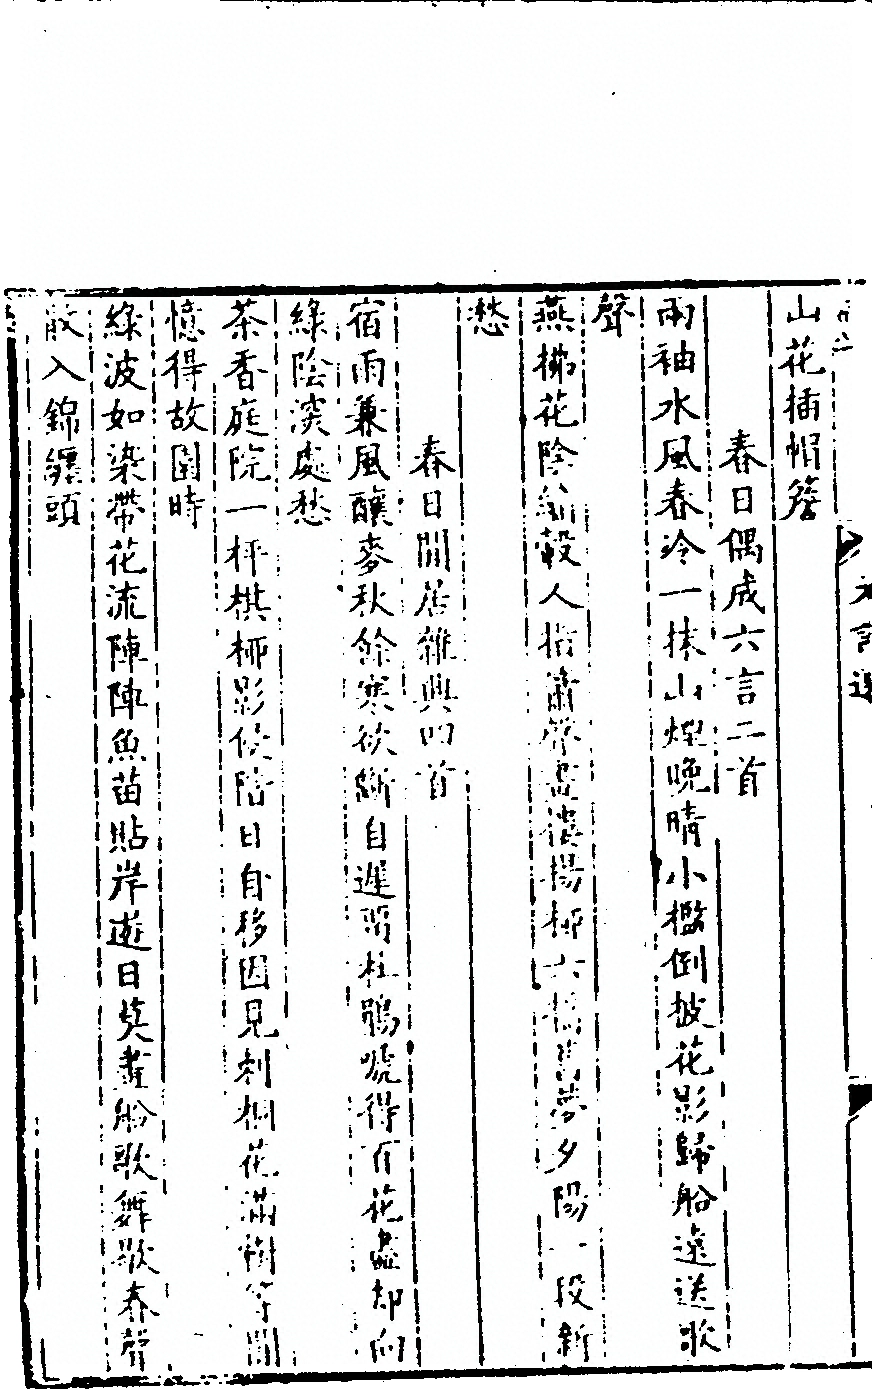 山花插帽簷
春日偶成六言二首
兩袖水風春冷一抹山煙晚晴小檻倒披花影歸船遠送歌
聲
燕拂花陰 轂人指簫聲畫樓楊栁六橋舊夢夕陽一段新
愁
春日閒居雜興四首
宿雨兼風釀麥秋餘寒欲斷自遲留杜鵑唬得百花盡却向
綠陰深處愁
茶香庭院一枰棋栁影侵階日自移因見刺桐花滿樹等閒
憶得故園時
綠波如染帶花流陣陣魚苗貼岸遊日莫畫船歌舞歇春聲
散入錦纏頭
元詩選